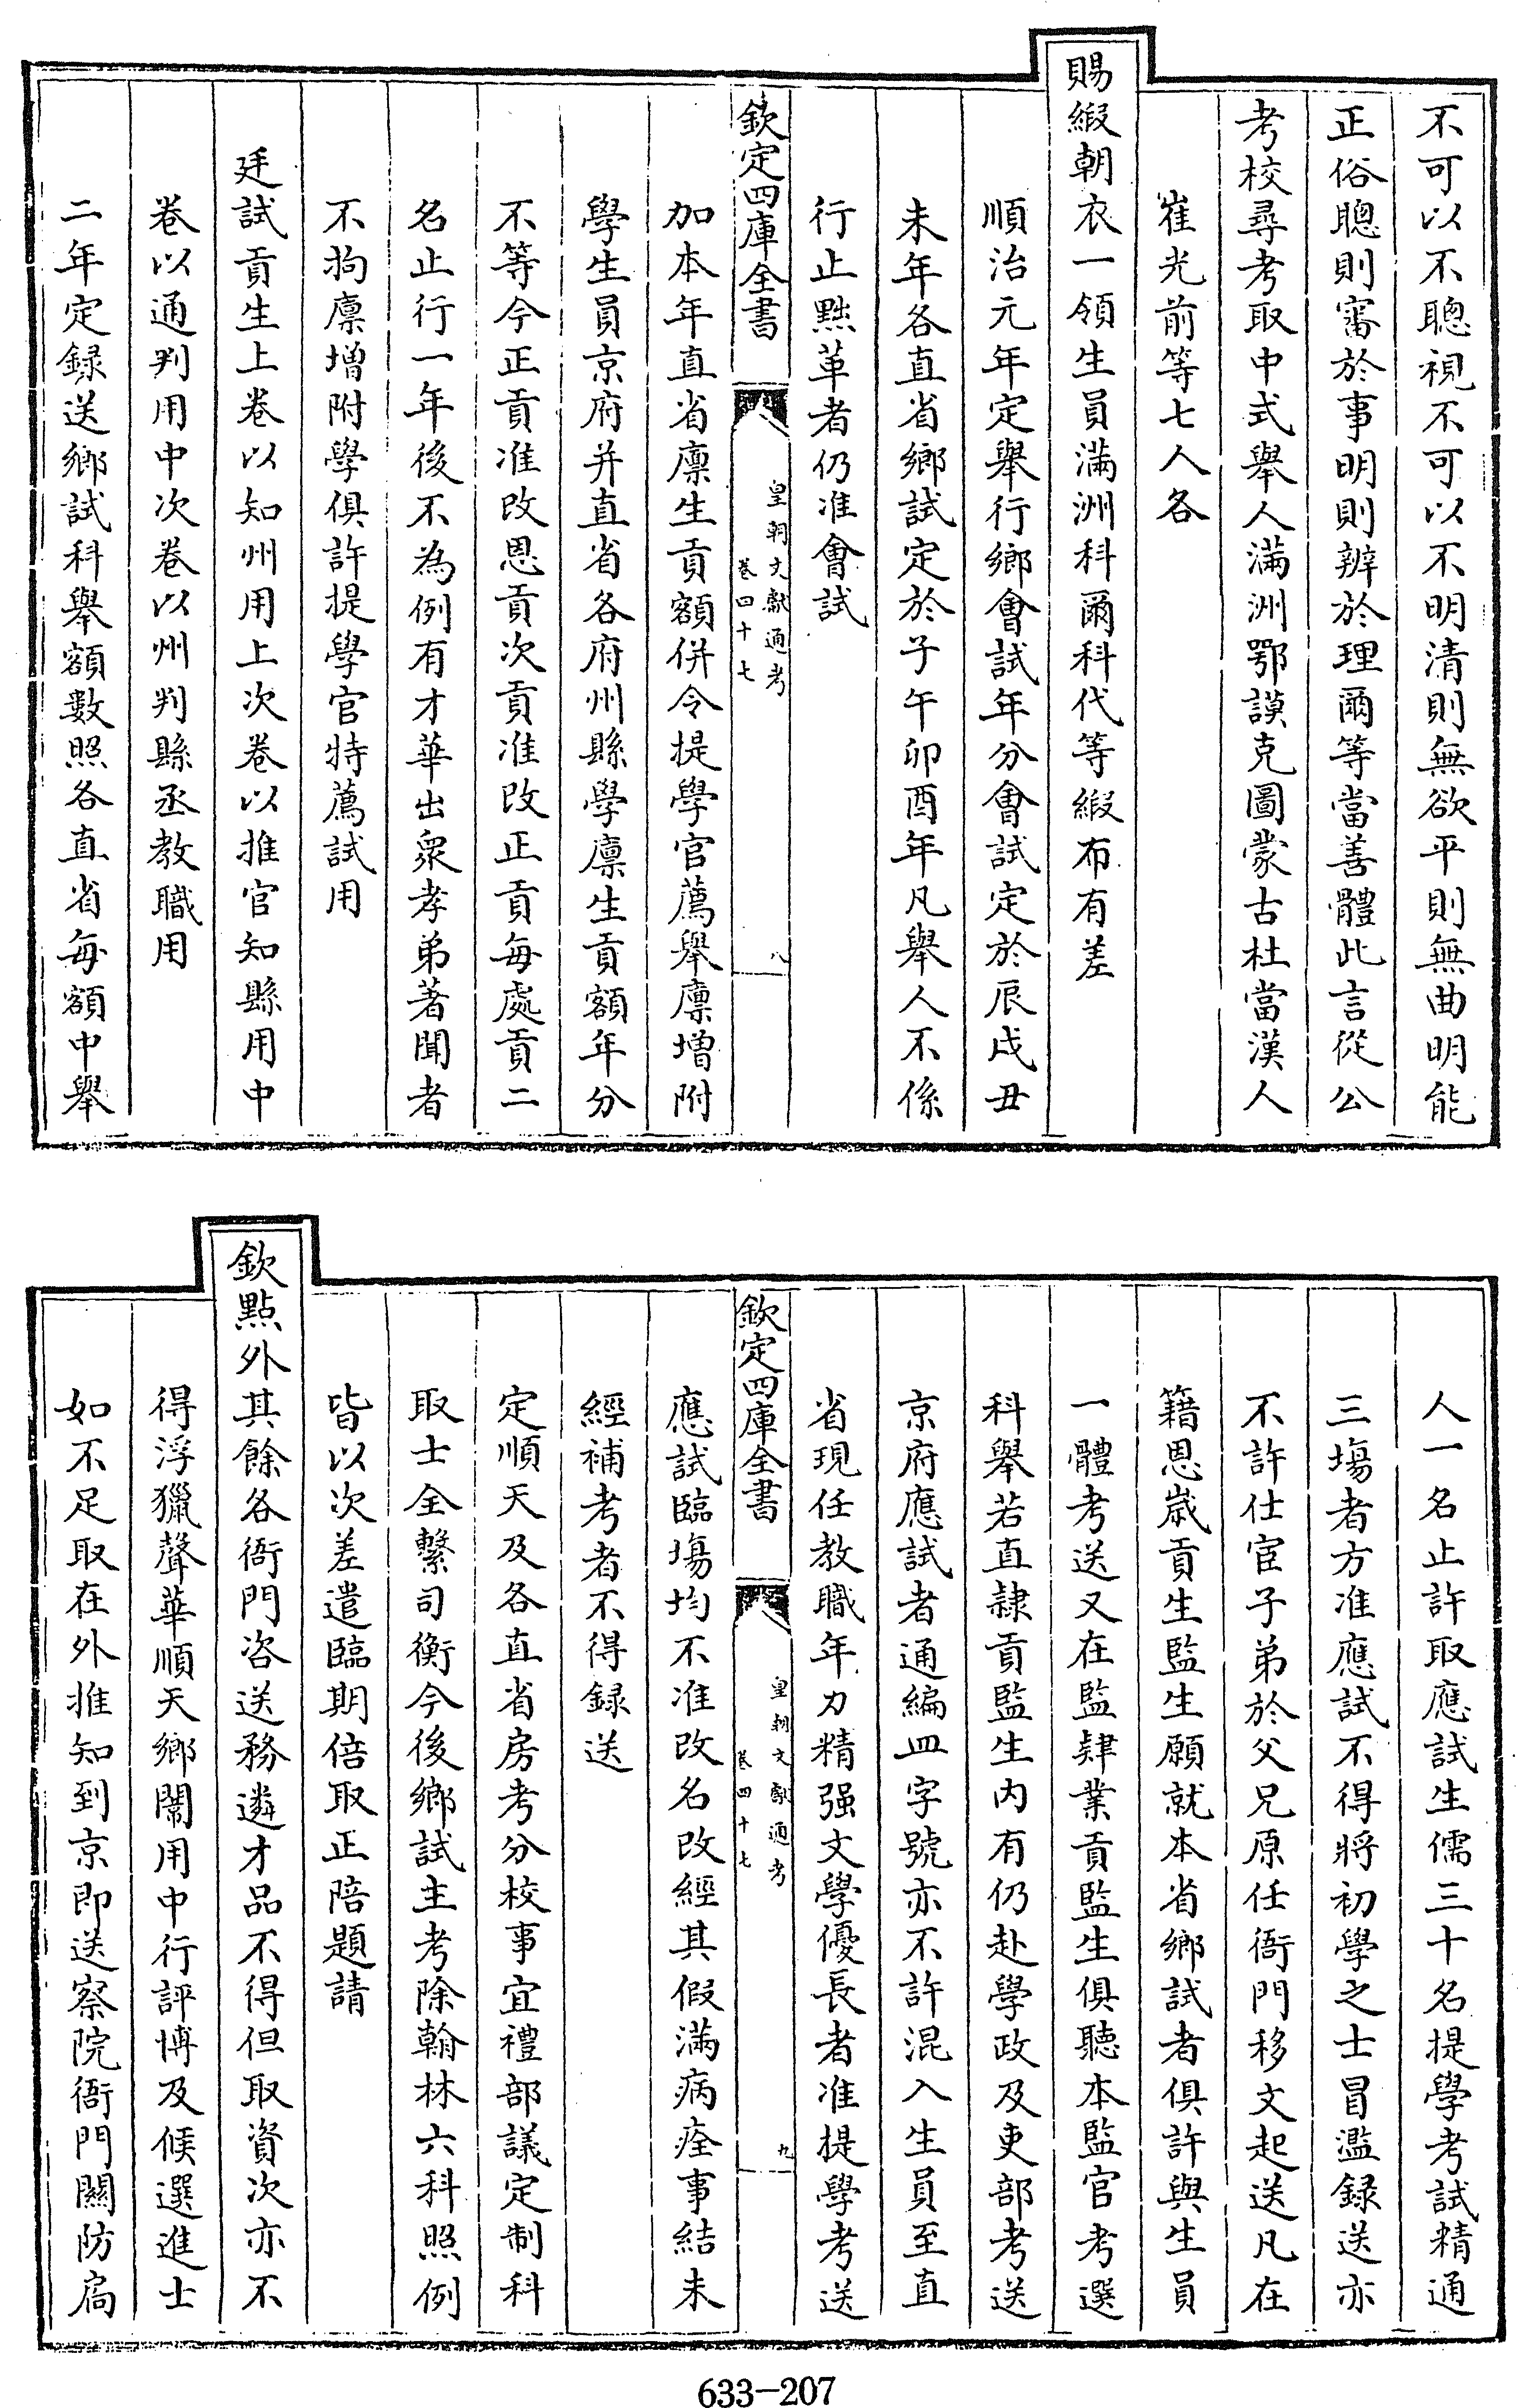 不可以不聰視不可以不明清則無欲平則無曲明能
正俗聰則審於事明則辨於理爾等當善體此言從公
考校尋考取中式舉人滿洲鄂謨克圖蒙古杜當漢人
崔光前等七人各
賜緞朝衣一領生員滿洲科爾科代等緞布有差
順治元年定舉行鄉會試年分會試定於辰戌丑
未年各直省鄉試定於子午卯酉年凡舉人不係
行止黜革者仍准會試
欽定四庫全書
皇朝文獻通考
卷四十七
八
加本年直省廪生貢額併令提學官薦舉廪增附
學生員京府并直省各府州縣學廪生貢額年分
不等今正貢准改恩貢次貢准改正貢每處貢二
名止行一年後不為例有才華出衆孝弟著聞者
不拘廪增附學俱許提學官特薦試用
廷試貢生上卷以知州用上次卷以推官知縣用中
卷以通判用中次卷以州判縣丞教職用
二年定録送鄉試科舉額數照各直省每額中舉
人一名止許取應試生儒三十名提學考試精通
三場者方准應試不得將初學之士冒濫録送亦
不許仕宦子弟於父兄原任衙門移文起送凡在
籍恩歲貢生監生願就本省鄉試者俱許與生員
一體考送又在監肄業貢監生俱聽本監官考選
科舉若直隷貢監生内有仍赴學政及吏部考送
京府應試者通編皿字號亦不許混入生員至直
省現任教職年力精强文學優長者准提學考送
欽定四庫全書
皇朝文獻通考
卷四十七
九
應試臨場均不准改名改經其假滿病痊事結未
經補考者不得録送
定順天及各直省房考分校事宜禮部議定制科
取士全繫司衡今後鄉試主考除翰林六科照例
皆以次差遣臨期倍取正陪題請
欽點外其餘各衙門咨送務遴才品不得但取資次亦不
得浮獵聲華順天鄉闈用中行評博及候選進士
如不足取在外推知到京即送察院衙門關防扃
633-207